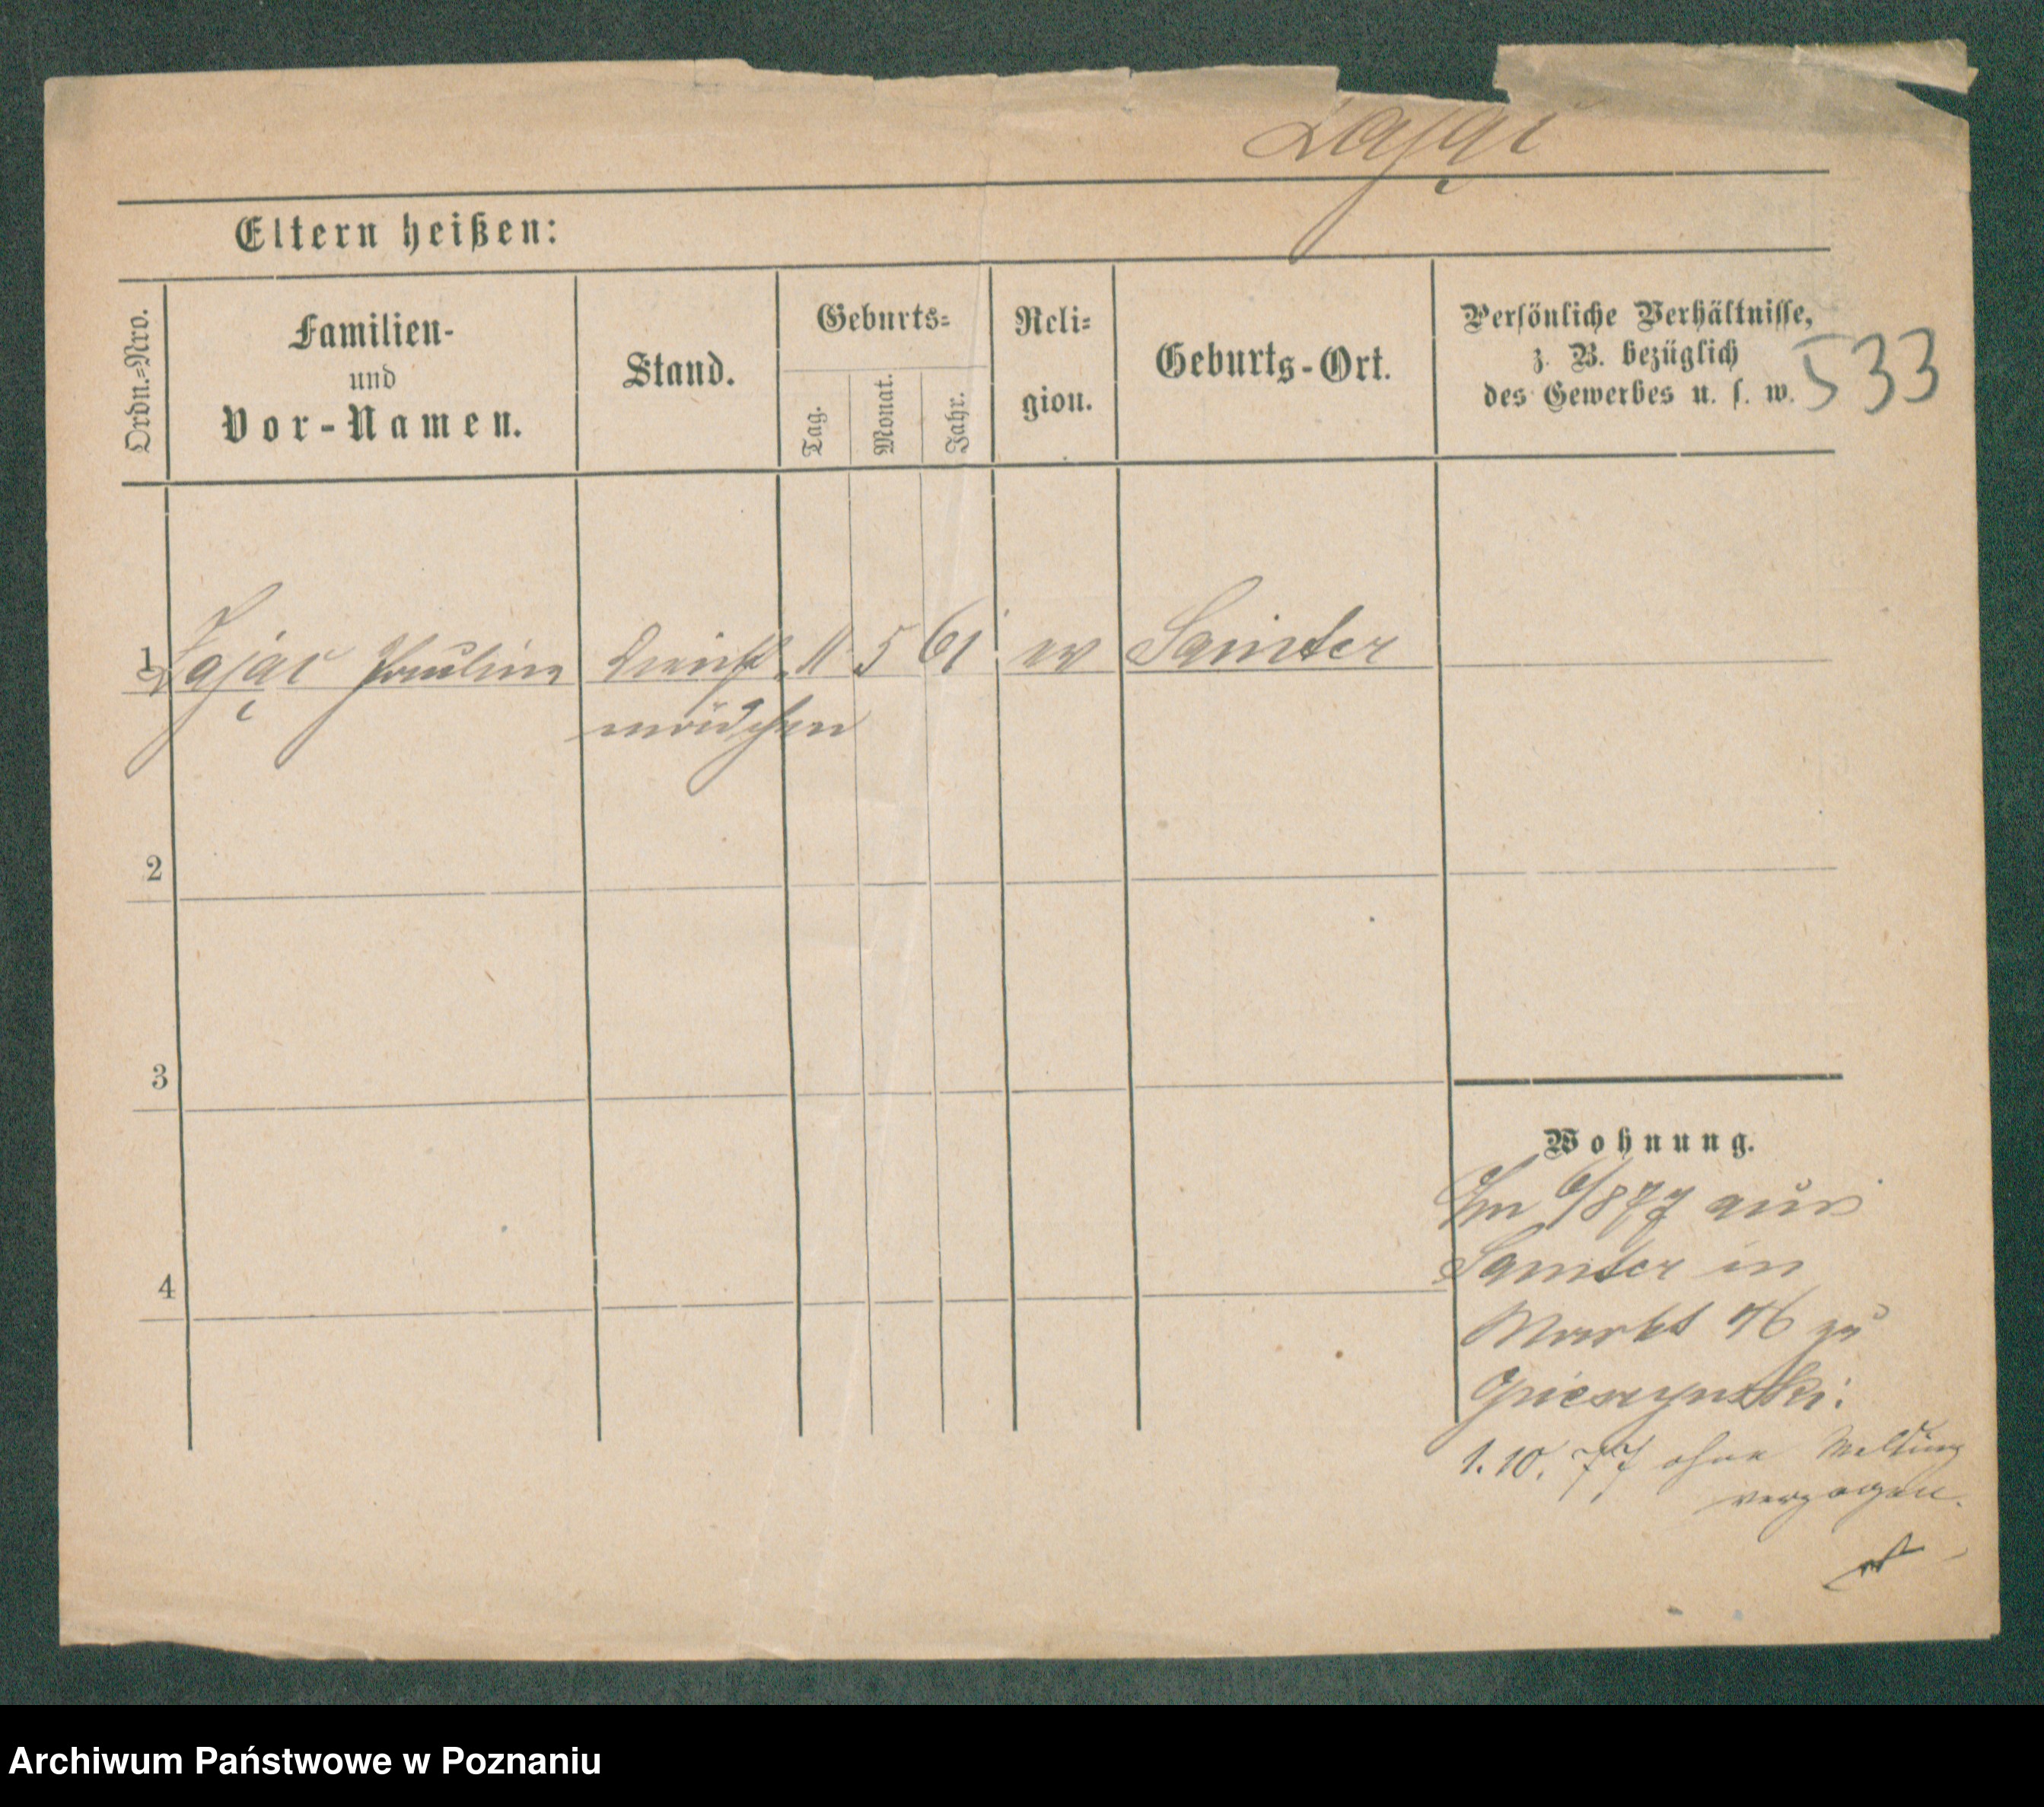 Zając
Eltern heißen:
Ordn.=Nro.
Familien-
und
Vor-Namen.
Stand.
Geburts=
Tag.
Monat.
Jahr.
Reli=
gion.
Geburts-Ort.
Persönliche Verhältnisse,
z. B. bezüglich
des Gewerbes u. s. w.
533
1 Zając Paulina Dienst 11 5 61 ev Samter
mädchen
2
3
4
Wohnung.
Im 6/877 aus
Samter in
Markt 46 zu
1. 10. 77 ohne Meldung
verzogen.
Archiwum Państwowe w Poznaniu